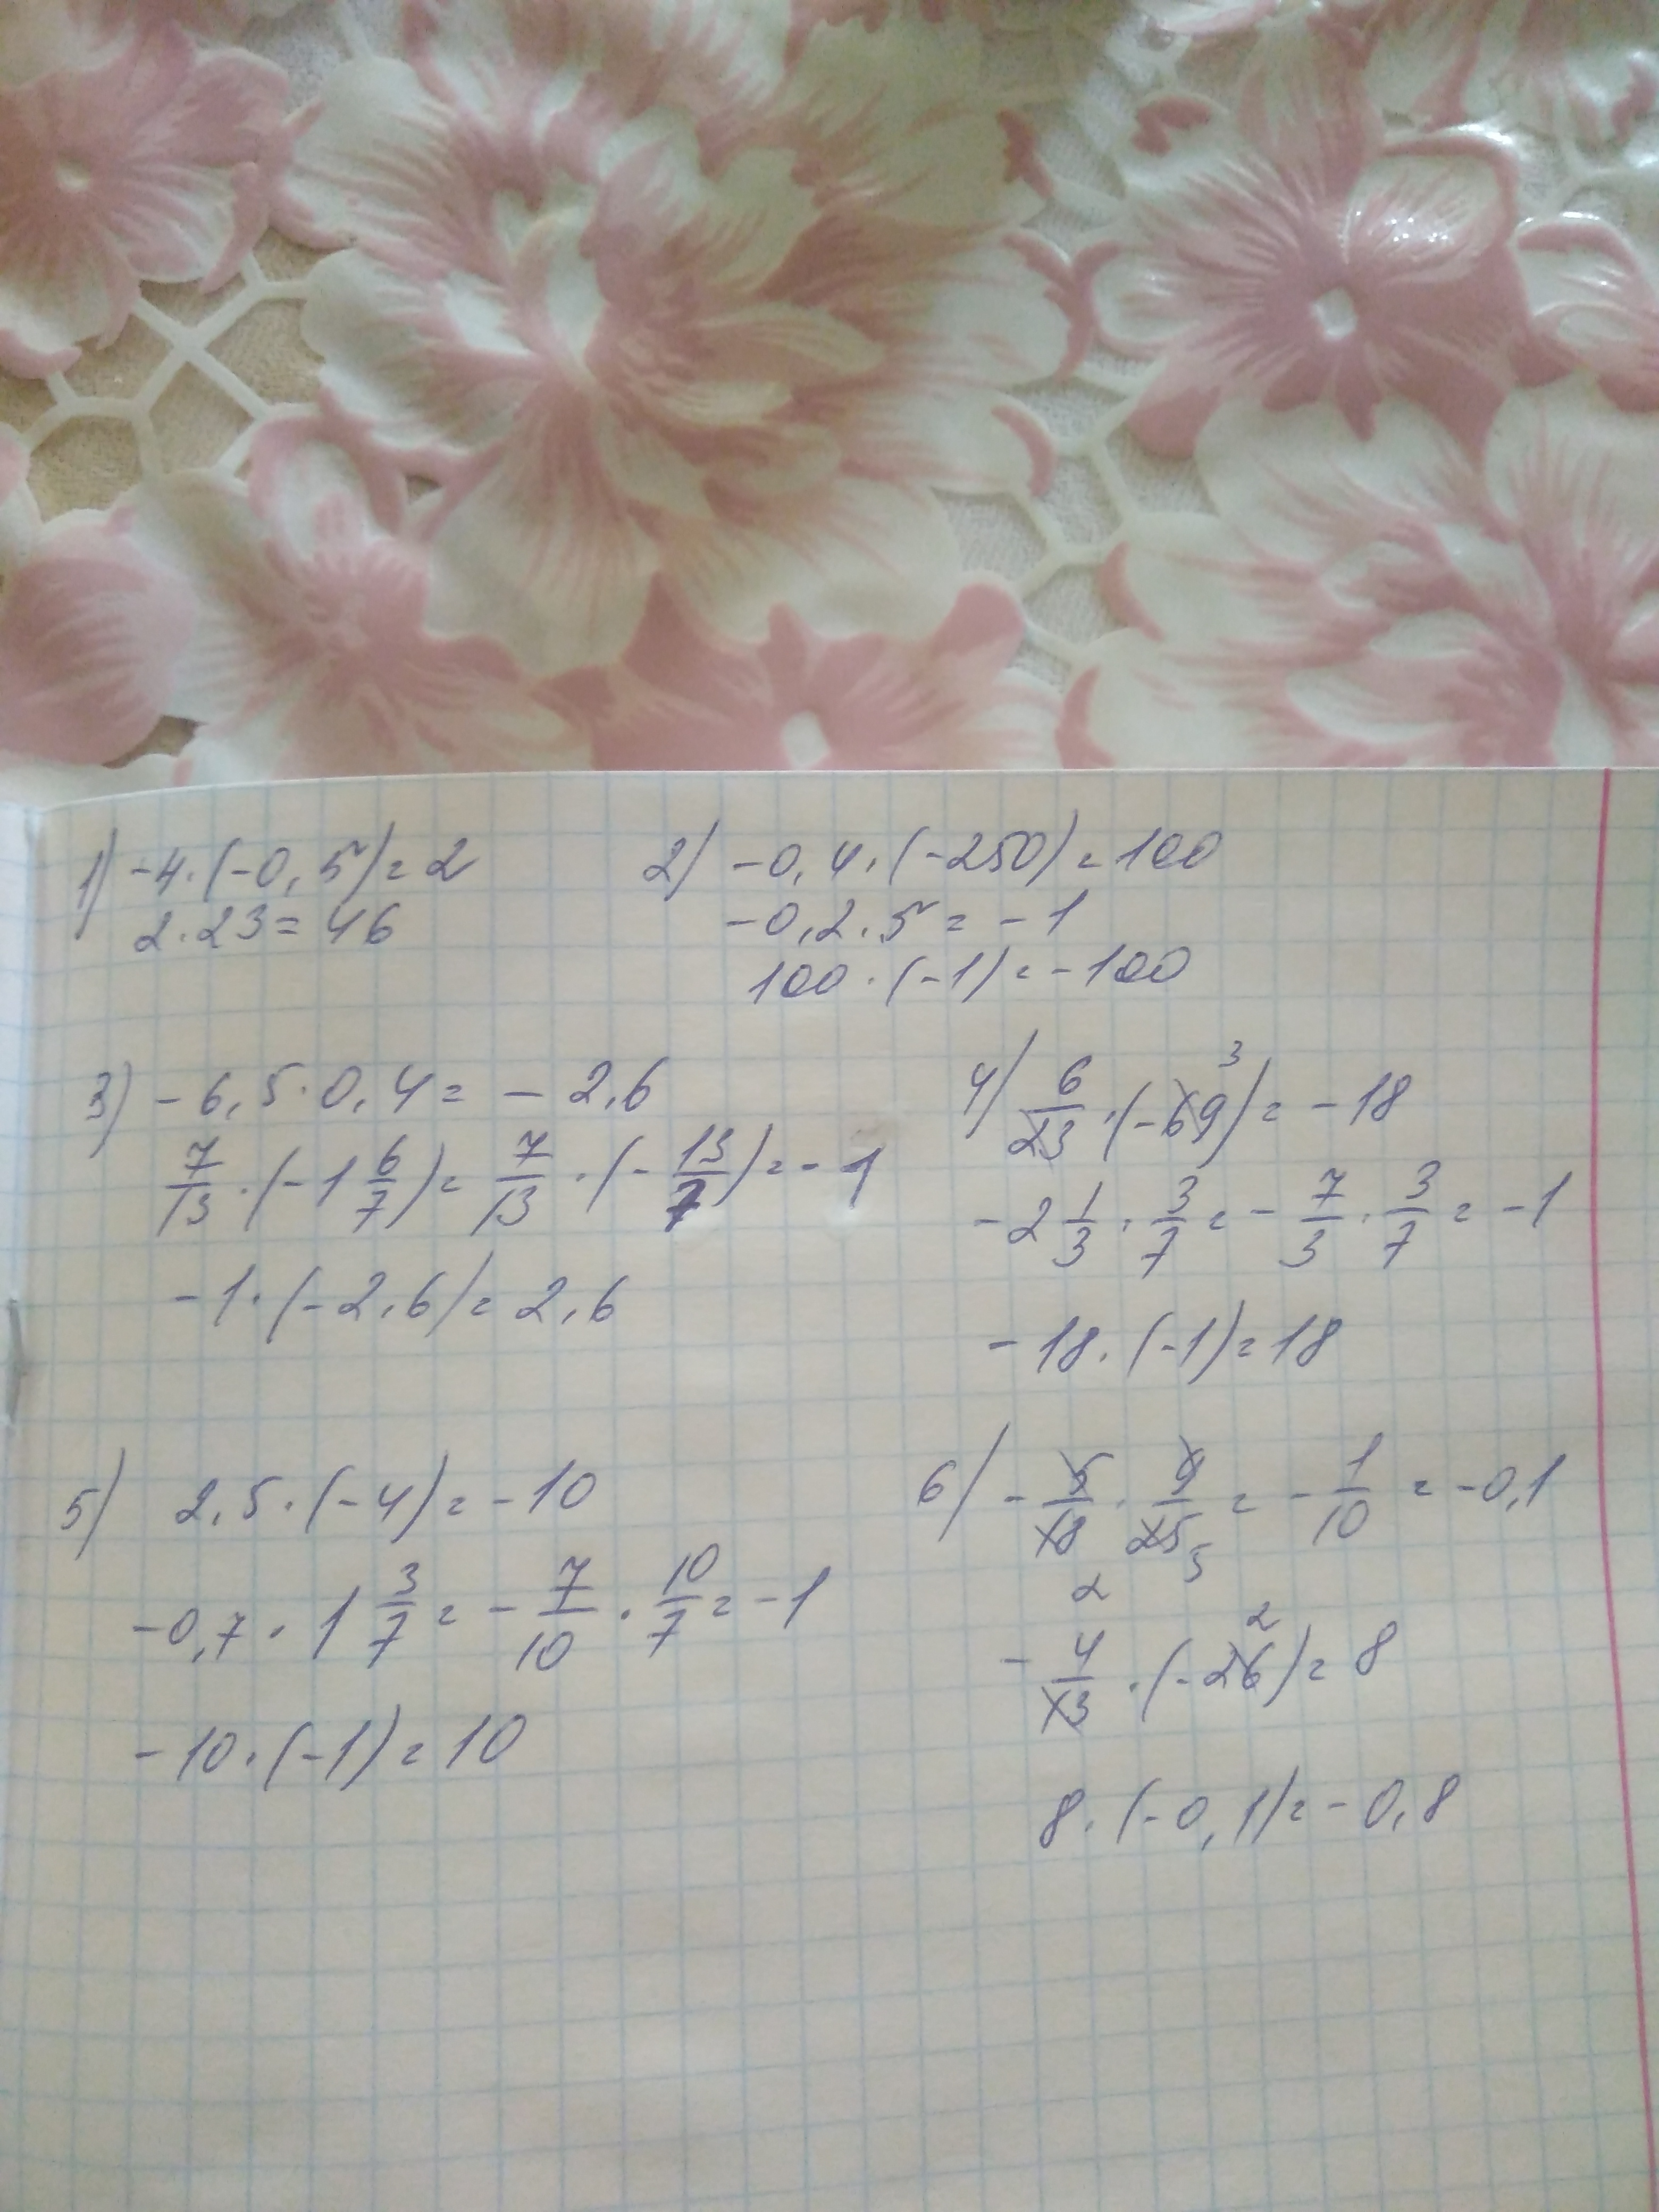 1) -4·(-0,5)=2
2·23=46
2) -0,4·(-250)=100
-0,2·5=-1
100·(-1)=-100
3) -6,5·0,4=-2,6
7/13·(-1 6/7)=7/13·(-13/7)=-1
-1·(-2,6)=2,6
4) 6/23·(-69)=-18 3
-2 1/3·3/7=-7/3·3/7=-1
-18·(-1)=18
5) 2,5·(-4)=-10
-0,7·1 3/7=-7/10·10/7=-1
-10·(-1)=10
6) -5/18·9/25=-1/10=-0,1
2 5
-4/13·(-26)=8 2
8·(-0,1)=-0,8